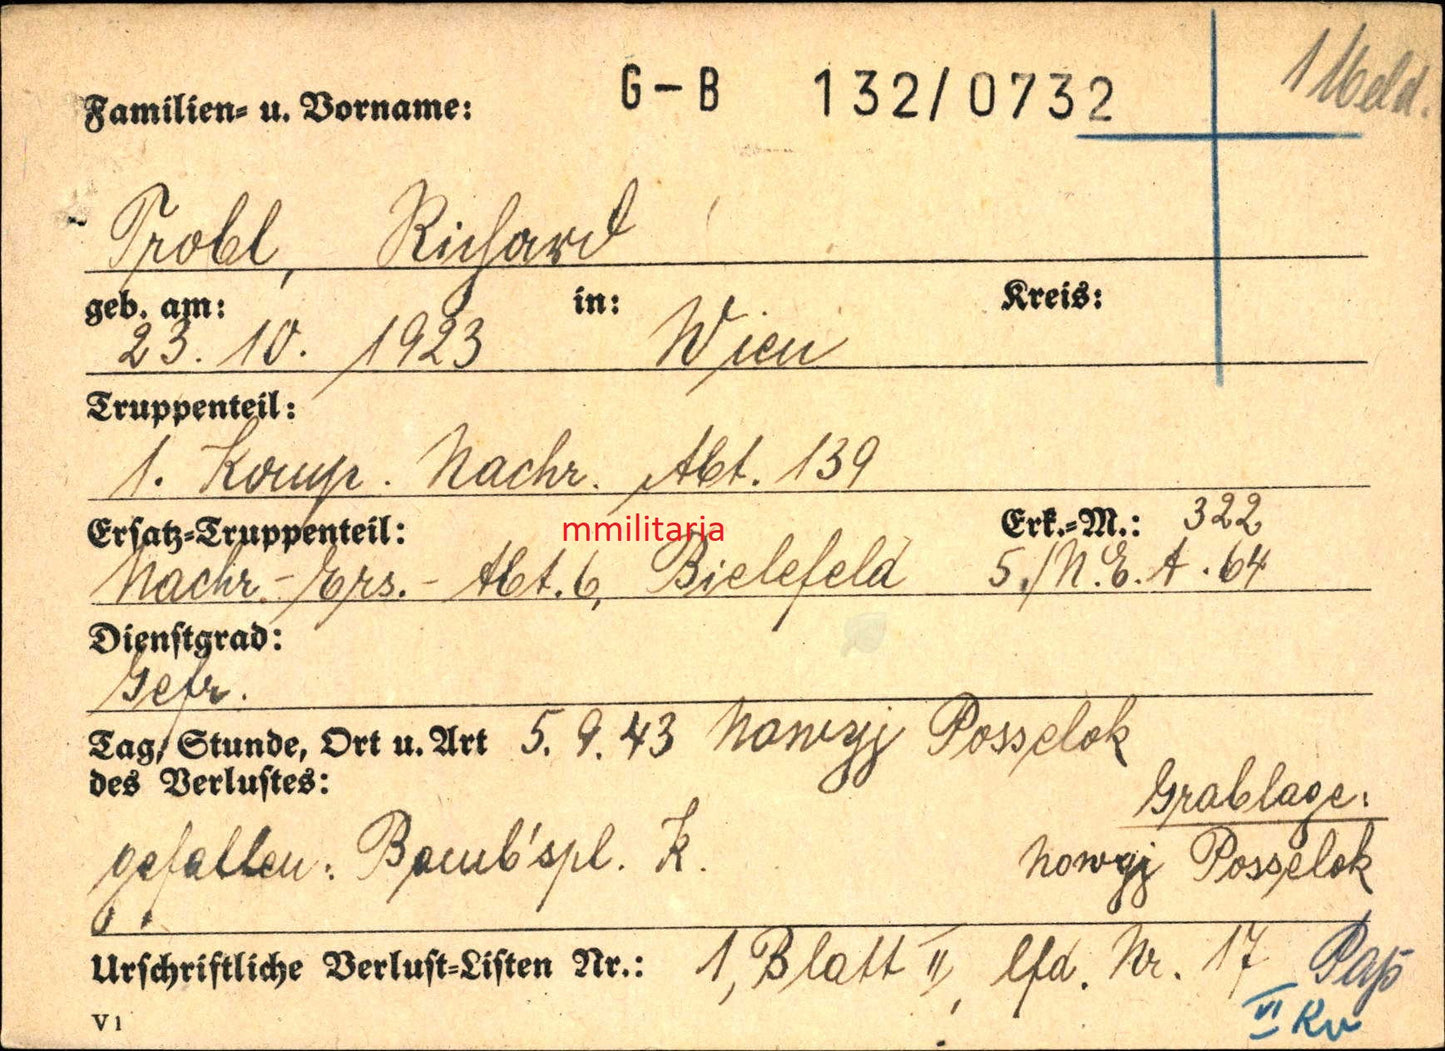 G-B 132/0732
1 Meld.
Familien- u. Vorname:
Trobl, Richard
geb. am: in: Kreis:
23. 10. 1923 Wien
Truppenteil:
1. Komp. Nachr. Abt. 139
Ersatz-Truppenteil: mmilitaria Erk.-M.: 322
Nachr.-Ers.-Abt. 6, Bielefeld 5./N.E.A. 64
Dienstgrad:
Gefr.
Tag, Stunde, Ort u. Art 5. 9. 43 Nowyj Posselok
des Verlustes:
Grablage:
gefallen: Bomb'spl. K. Nowyj Posselok
Urschriftliche Verlust-Listen Nr.: 1, Blatt II, lfd. Nr. 17
V 1 VI